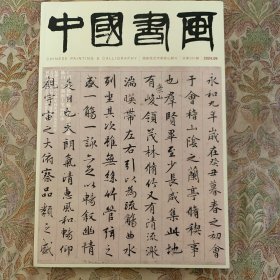 中國書画
CHINESE PAINTING & CALLIGRAPHY
永和九年歲在癸丑暮春之初會
于會稽山陰之蘭亭脩稧事
也羣賢畢至少長咸集此地
有崇山峻領茂林脩竹又有清流激
湍暎帶左右引以為流觴曲水
列坐其次雖無絲竹管弦之
盛一觴一詠亦足以暢敘幽情
是日也天朗氣清惠風和暢仰
觀宇宙之大俯察品類之盛